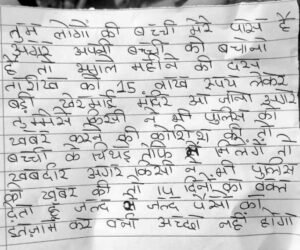 तुम लोगों की बच्ची मेरे पास है
अगर अपनी बच्ची को बचाना
है तो अगले महीने की दस
तारीख को 15 लाख रुपये लेकर
बड़ी खेरमाई मंदिर आ जाना अगर
तुममेसे किसी न भी पुलिस को
खबर करने की कोशिश की तो
बच्ची के चिथड़े मिलेंगे तो
खबरदार अगर किसी न भी पुलिस
को खबर की तो 14 दिनों का वक्त
देता हूँ जल्द से जल्द पैसो का
इंतजाम कर वर्ना अच्छा नहीं होगा